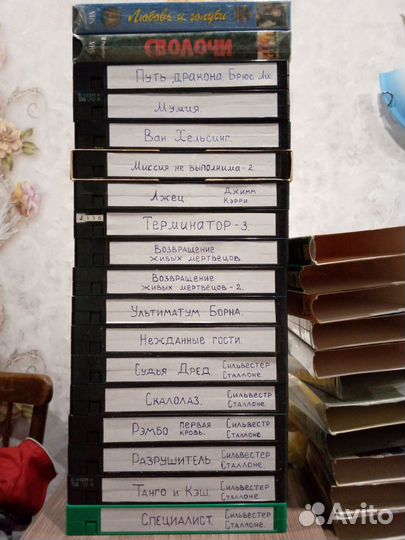 VHS Любовь и голуби
VHS СВОЛОЧИ
Путь дракона Брюс Ли
Мумия.
Ван Хельсинг.
Миссия не выполнима-2.
Лжец Джимм
Кэрри
J 116
Терминатор-3.
Возвращение
живых мертвецов.
Возвращение
живых мертвецов-2.
Ультиматум Борна.
Нежданные гости.
Судья Дред. Сильвестер
Сталлоне.
Скалолаз. Сильвестр
Сталлоне.
Рэмбо первая
кровь. Сильвестр
Сталлоне.
Разрушитель. Сильвестер
Сталлоне.
Танго и Кэш. Сильвестер
Сталлоне.
Специалист. Сильвестер
Сталлоне.
Avito